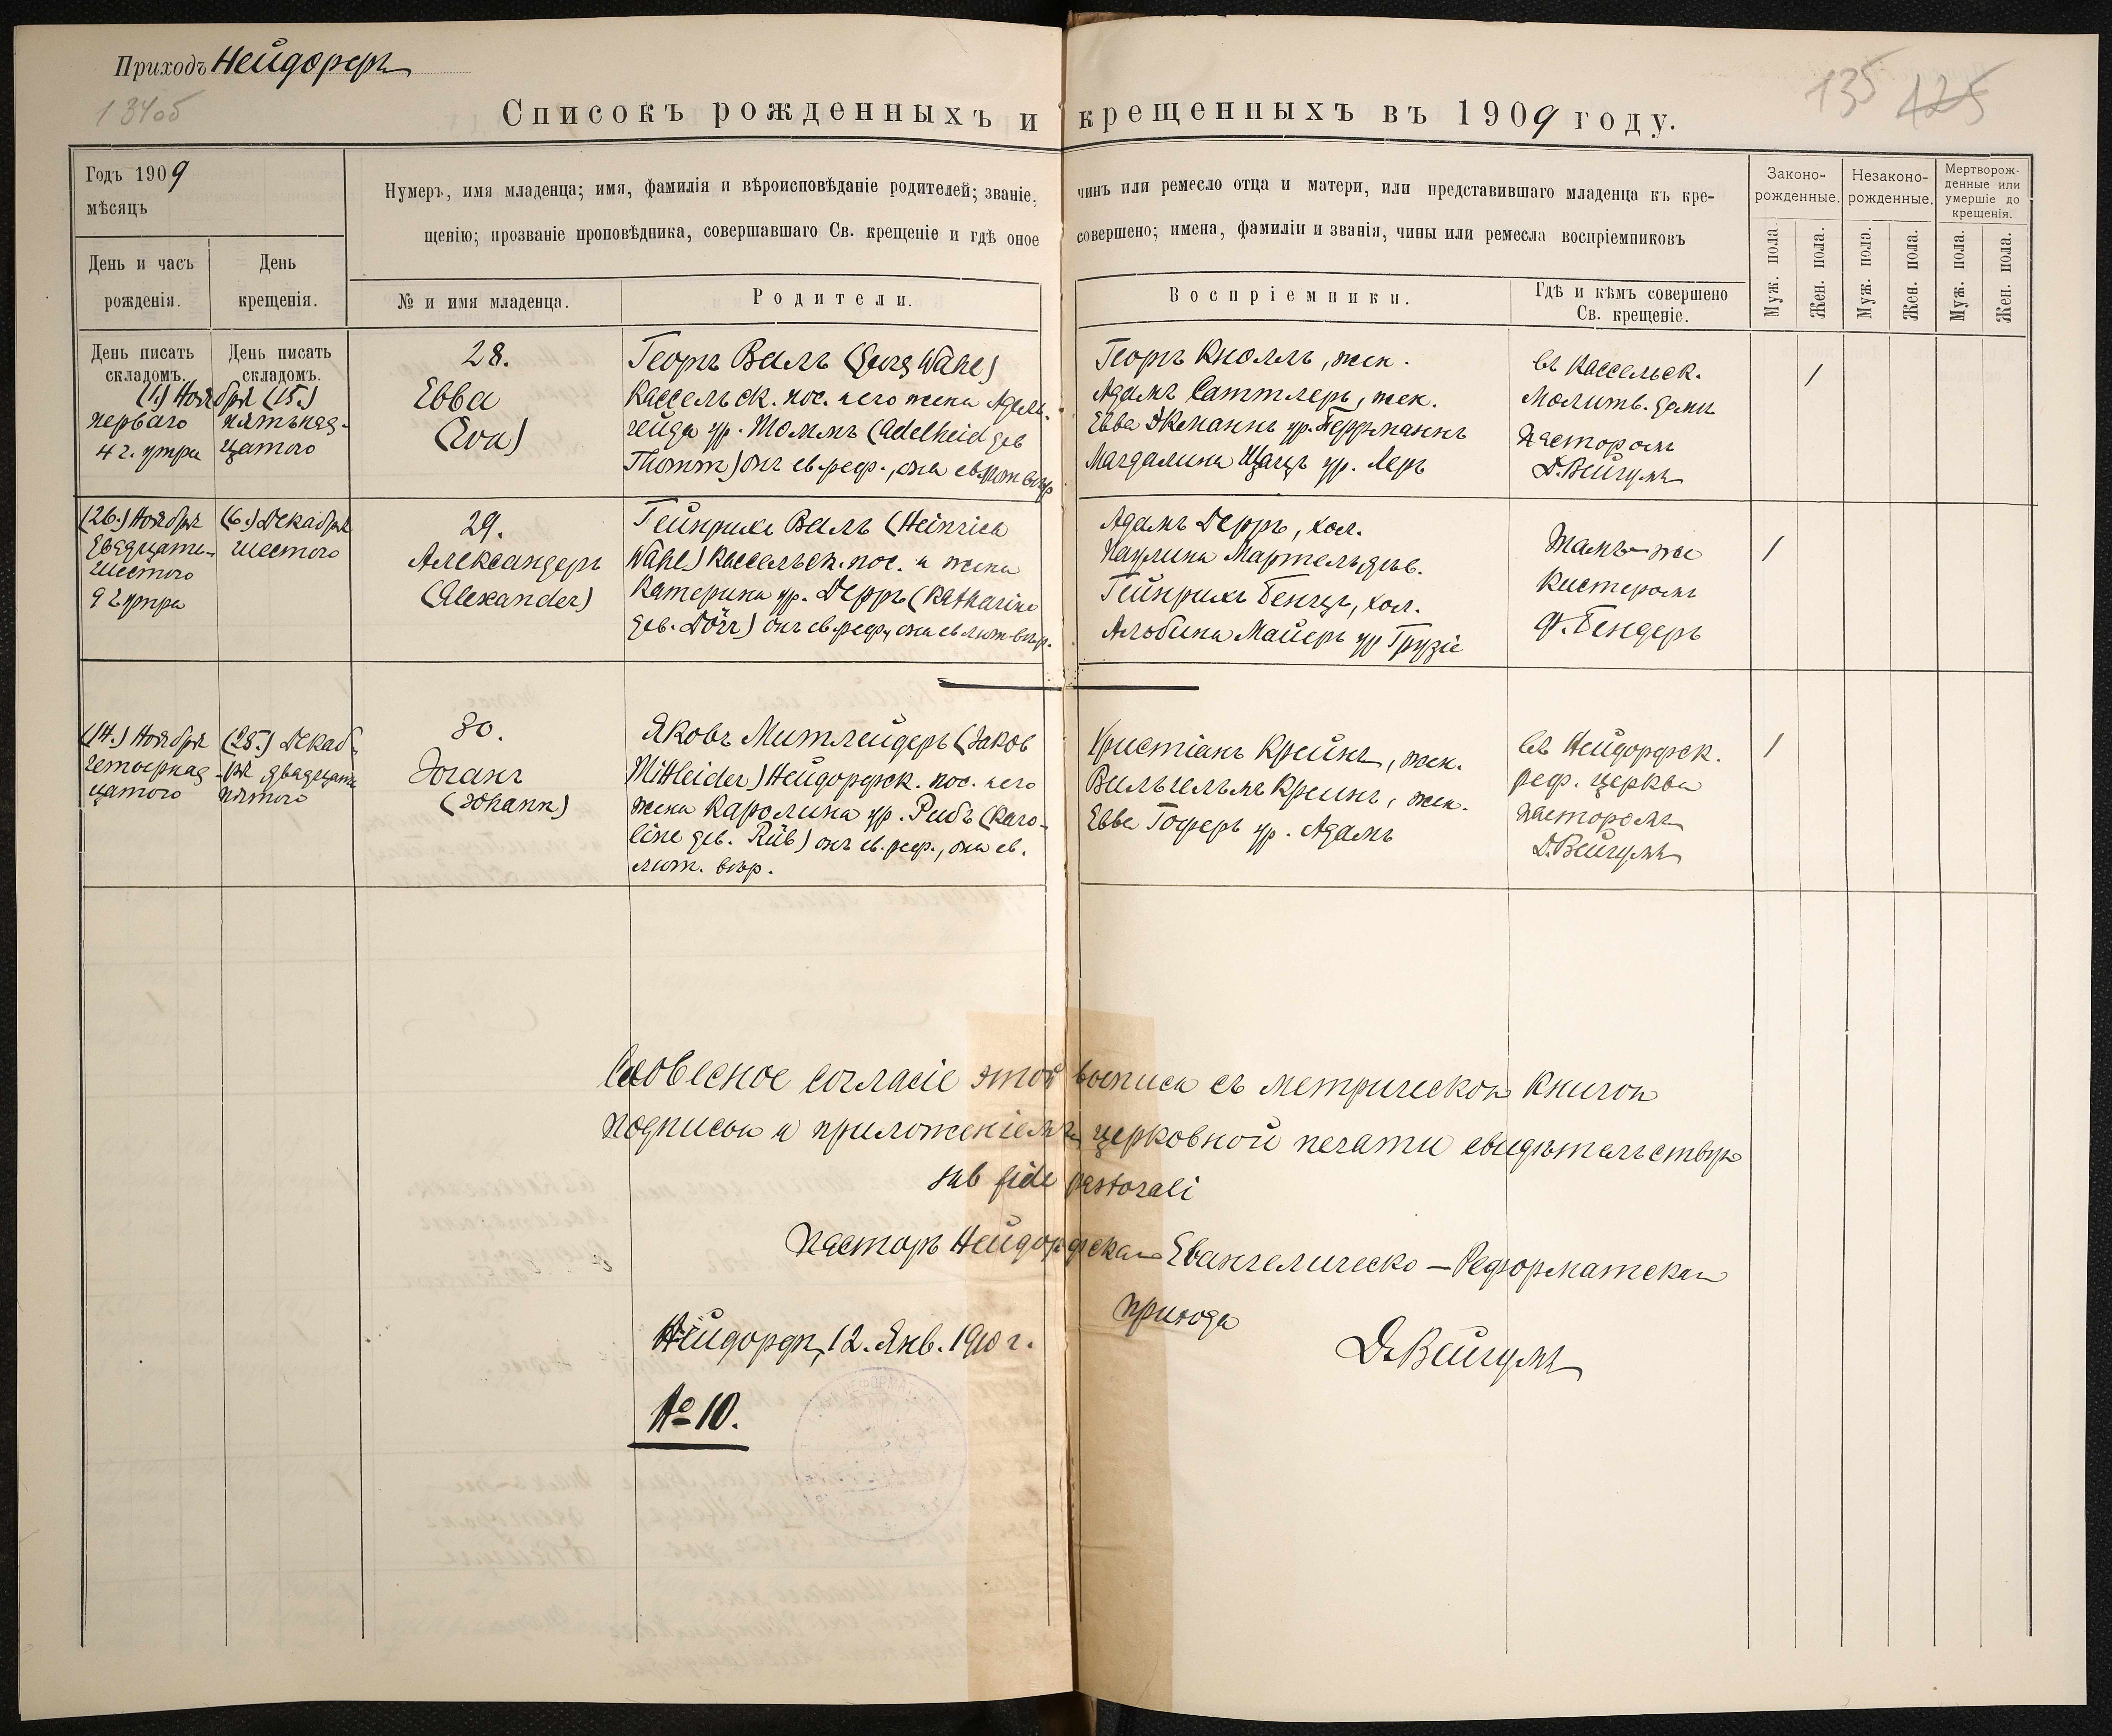 Приходъ Нейдорфъ
134об
135 425
Списокъ рожденныхъ и крещенныхъ въ 1909 году.
Годъ 1909
мѣсяцъ
День и часъ
рожденія.
День
крещенія.
Нумеръ, имя младенца; имя, фамилія и вѣроисповѣданіе родителей; званіе, чинъ или ремесло отца и матери, или представившаго младенца къ кре-
щенію; прозваніе проповѣдника, совершавшаго Св. крещеніе и гдѣ оное совершено; имена, фамиліи и званія, чины или ремесла воспріемниковъ
№ и имя младенца.
Родители.
Воспріемники.
Гдѣ и кѣмъ совершено
Св. крещеніе.
Законо-
рожденные.
Незаконо-
рожденные.
Мертворож-
денные или
умершіе до
крещенія.
Муж. пола.
Жен. пола.
Муж. пола.
Жен. пола.
Муж. пола.
Жен. пола.
День писать
складомъ.
День писать
складомъ.
(1.) Ноября (15.)
перваго
4 ч. утра
пятьнад-
цатого
28.
Евва
(Eva)
Георгъ Валъ (Georg Wahl)
Кассельск. пос. и его жена Адель-
гейда ур. Томмъ (Adelheid geb
Thomm) онъ ев. реф., она ев. лют. вѣр
Георгъ Кноллъ, жен.
Адамъ Саттлеръ, жен.
Евва ур. Геррманнъ
Магдалина ур. Леръ
въ Кассельск.
Молитв. доми
Пасторомъ
Д. Вейгумъ
/
(26.) Ноября
двадцати-
шестого
9 ч утра
(6.) Декабря
шестого
29.
Александеръ
(Alexander)
Гейнрихъ Валъ (Heinrich
Wahl) Кассельск. пос. и жена
Катерина ур. Дерръ (Katharina
geb. Dörr) онъ ев. реф., она ев лют. вѣр.
Адамъ Дерръ, хол.
Паулина Мартель, дѣв.
Гейнрихъ Бенцъ, хол.
Альбина Майеръ ур Грузіе
Тамъ-же
Кистеромъ
Ф. Бендеръ
/
(14.) Ноября
четырнад
цатого
(25.) Декаб-
-ря двадцати
пятого
30.
Іоганъ
(Johann)
Яковъ Митлейдеръ (Jakob
Mittleider) Нейдорфск. пос. и его
жена Каролина ур. Рибъ (Karo-
line geb. Rüb) онъ ев. реф., она ев.
лют. вѣр.
Христіанъ Крейнъ, жен.
Вильгельмъ Крейнъ, жен.
Евва Гоферъ ур. Адамъ
въ Нейдорфск.
реф. церкви
Пасторомъ
Д. Вейгумъ
/
Словесное согласіе этой выписи съ метрической книгой
подписью и приложеніемъ церковной печати свидѣтельствую
sub fide pastorali
Пасторъ Нейдорфскаго Евангелическо-Реформатскаго
прихода
Нейдорфъ, 12. Янв. 1910 г.
Д. Вейгумъ
№ 10.